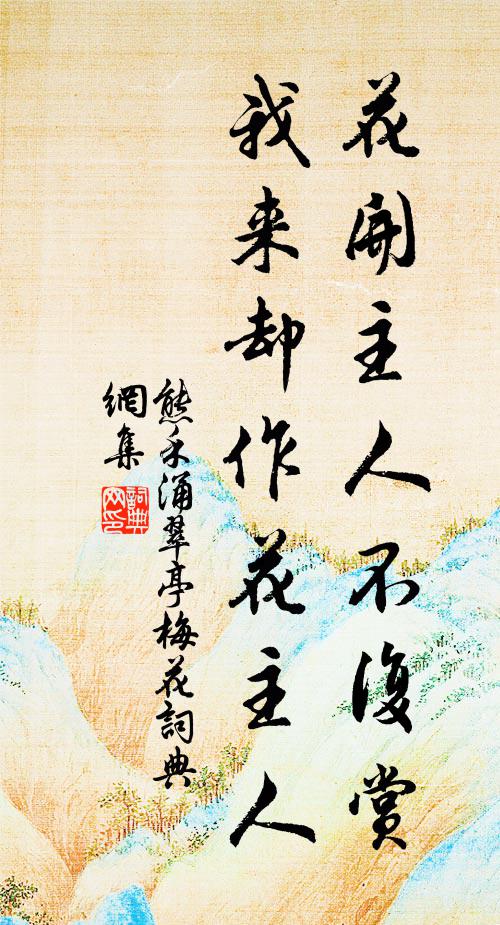 花開主人不復賞
我来却作花主人
熊禾涌翠亭梅花詞典
網集
詞典
网印